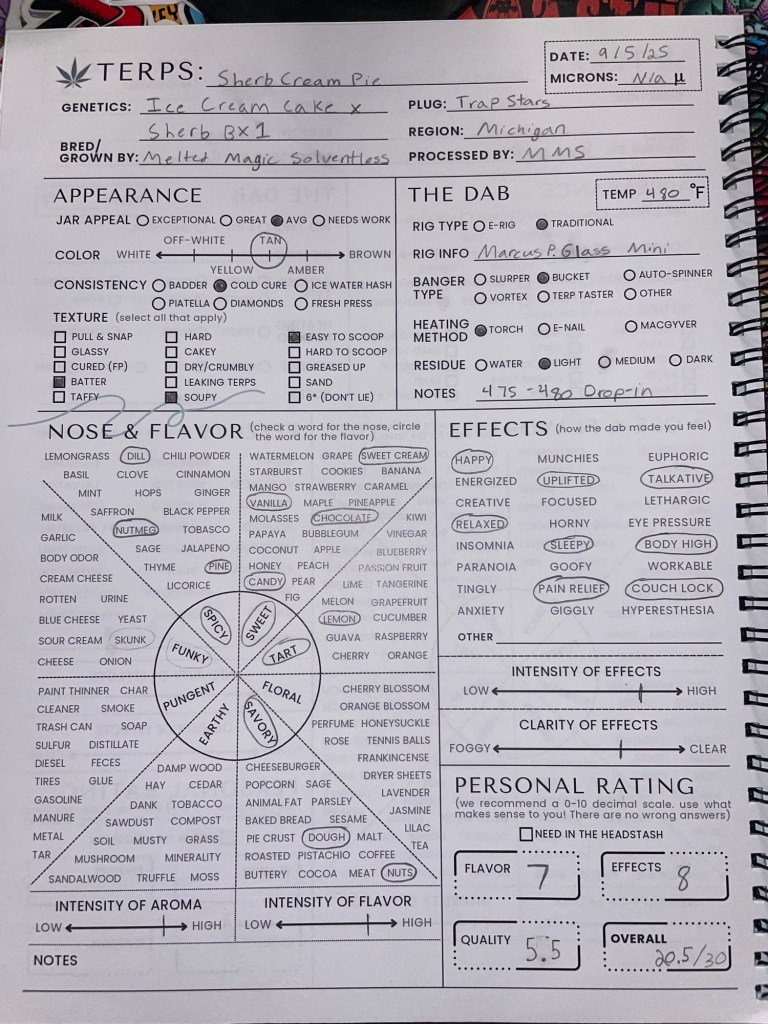 TERPS: Sherb Cream Pie
DATE: 9/5/25
MICRONS: N/a µ
GENETICS: Ice Cream Cake x
Sherb BX1
PLUG: Trap Stars
REGION: Michigan
BRED/
GROWN BY: Melted Magic Solventless
PROCESSED BY: MMS
APPEARANCE
JAR APPEAL EXCEPTIONAL GREAT AVG NEEDS WORK
OFF-WHITE TAN
COLOR WHITE BROWN
YELLOW AMBER
CONSISTENCY BADDER COLD CURE ICE WATER HASH
PIATELLA DIAMONDS FRESH PRESS
TEXTURE (select all that apply)
PULL & SNAP HARD EASY TO SCOOP
GLASSY CAKEY HARD TO SCOOP
CURED (FP) DRY/CRUMBLY GREASED UP
BATTER LEAKING TERPS SAND
TAFFY SOUPY 6* (DON'T LIE)
THE DAB
TEMP 480 °F
RIG TYPE E-RIG TRADITIONAL
RIG INFO Marcus P. Glass Mini
BANGER TYPE SLURPER BUCKET AUTO-SPINNER
VORTEX TERP TASTER OTHER
HEATING METHOD TORCH E-NAIL MACGYVER
RESIDUE WATER LIGHT MEDIUM DARK
NOTES 475-480 Drop-in
NOSE & FLAVOR (check a word for the nose, circle
the word for the flavor)
LEMONGRASS DILL CHILI POWDER
BASIL CLOVE CINNAMON
MINT HOPS GINGER
SAFFRON BLACK PEPPER
NUTMEG TOBASCO
SAGE JALAPENO
THYME PINE
LICORICE
MILK
GARLIC
BODY ODOR
CREAM CHEESE
ROTTEN URINE
BLUE CHEESE YEAST
SOUR CREAM SKUNK
CHEESE ONION
WATERMELON GRAPE SWEET CREAM
STARBURST COOKIES BANANA
MANGO STRAWBERRY CARAMEL
VANILLA MAPLE PINEAPPLE
MOLASSES CHOCOLATE
PAPAYA BUBBLEGUM
COCONUT APPLE
HONEY PEACH
CANDY PEAR
FIG
KIWI
VINEGAR
BLUEBERRY
PASSION FRUIT
LIME TANGERINE
MELON GRAPEFRUIT
LEMON CUCUMBER
GUAVA RASPBERRY
CHERRY ORANGE
SPICY SWEET
FUNKY TART
PUNGENT FLORAL
EARTHY SAVORY
PAINT THINNER CHAR
CLEANER SMOKE
TRASH CAN SOAP
SULFUR DISTILLATE
DIESEL FECES
TIRES GLUE
GASOLINE
MANURE
METAL
TAR
DAMP WOOD
HAY CEDAR
DANK TOBACCO
SAWDUST COMPOST
SOIL MUSTY GRASS
MUSHROOM MINERALITY
SANDALWOOD TRUFFLE MOSS
CHEESEBURGER
POPCORN SAGE
ANIMAL FAT PARSLEY
BAKED BREAD SESAME
PIE CRUST DOUGH MALT
ROASTED PISTACHIO COFFEE
BUTTERY COCOA MEAT NUTS
CHERRY BLOSSOM
ORANGE BLOSSOM
PERFUME HONEYSUCKLE
ROSE TENNIS BALLS
FRANKINCENSE
DRYER SHEETS
LAVENDER
JASMINE
LILAC
TEA
INTENSITY OF AROMA
LOW HIGH
INTENSITY OF FLAVOR
LOW HIGH
NOTES
EFFECTS (how the dab made you feel)
HAPPY MUNCHIES EUPHORIC
ENERGIZED UPLIFTED TALKATIVE
CREATIVE FOCUSED LETHARGIC
RELAXED HORNY EYE PRESSURE
INSOMNIA SLEEPY BODY HIGH
PARANOIA GOOFY WORKABLE
TINGLY PAIN RELIEF COUCH LOCK
ANXIETY GIGGLY HYPERESTHESIA
OTHER
INTENSITY OF EFFECTS
LOW HIGH
CLARITY OF EFFECTS
FOGGY CLEAR
PERSONAL RATING
(we recommend a 0-10 decimal scale. use what
makes sense to you! There are no wrong answers)
NEED IN THE HEADSTASH
FLAVOR 7
EFFECTS 8
QUALITY 5.5
OVERALL 20.5/30